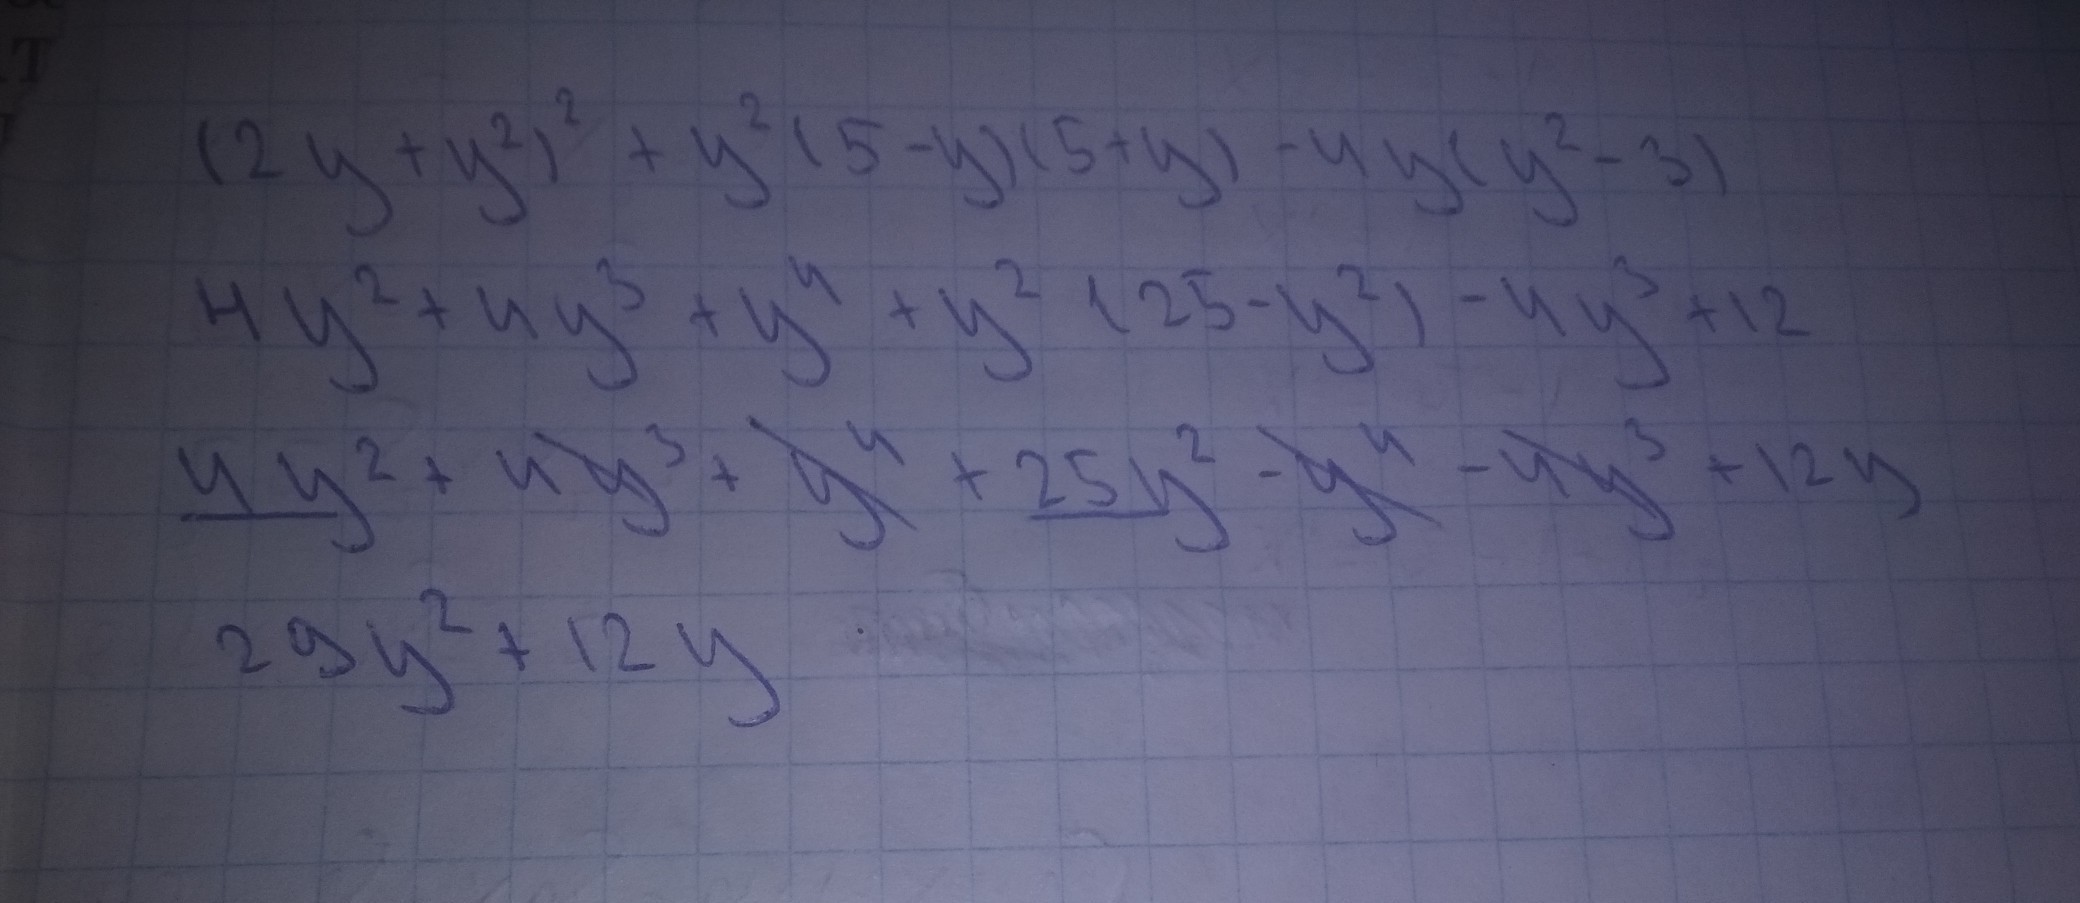 (2y+y²)² + y²(5-y)(5+y) -4y(y²-3)
4y² + 4y³ + y⁴ + y² (25-y²) -4y³ +12
4y² + 4y³ + y⁴ + 25y² - y⁴ - 4y³ + 12y
29y² + 12y